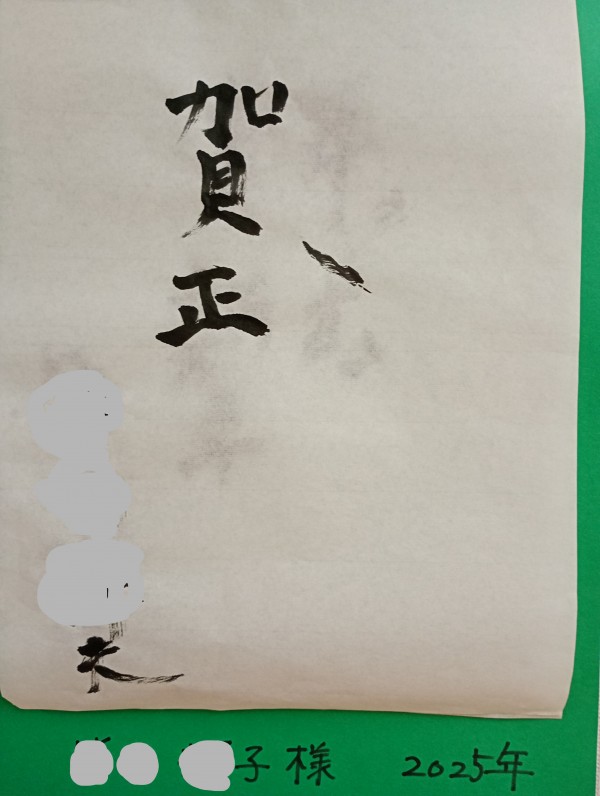 賀正
子様 2025年